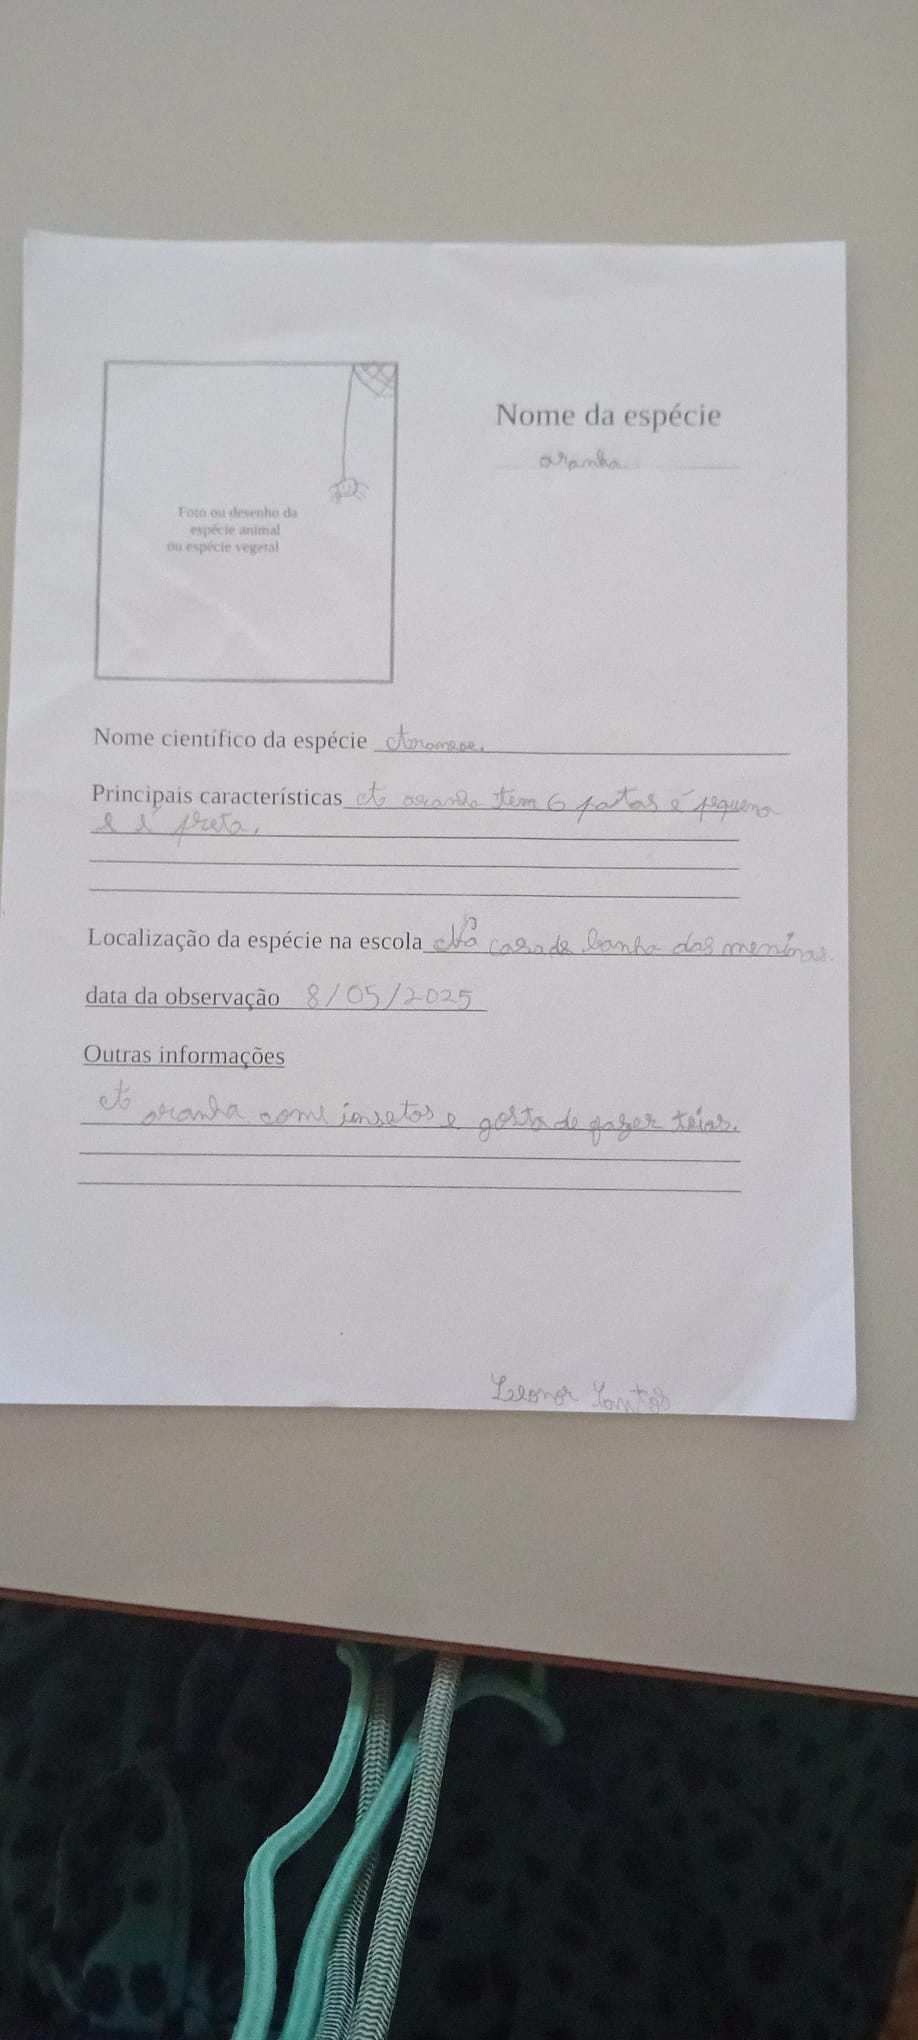 Nome da espécie
aranha
Foto ou desenho da
espécie animal
ou espécie vegetal
Nome científico da espécie
Principais características A aranha tem 6 patas é pequena
e é preta.
Localização da espécie na escola Na casa de banha das meninas.
data da observação 8/05/2025
Outras informações
A aranha come insetos e gosta de fazer teias.
Leonor Santos